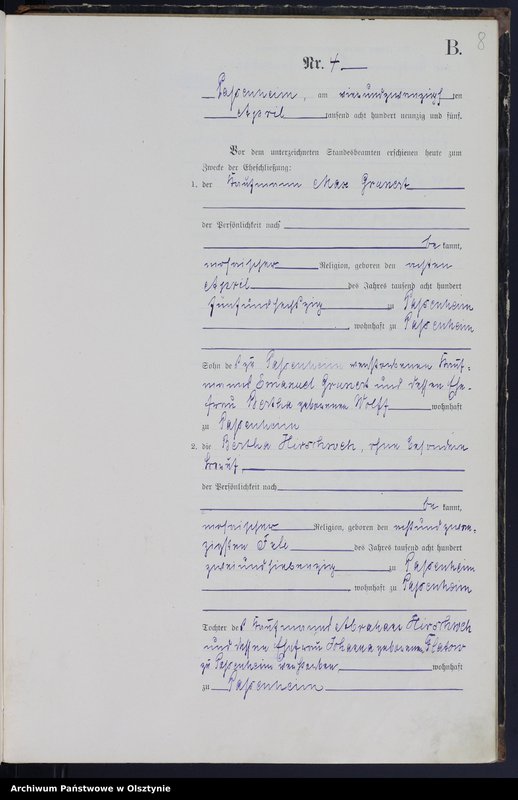 B.
8
Nr. 4
Passenheim, am vierundzwanzigsten
April tausend acht hundert neunzig und fünf.
Vor dem unterzeichneten Standesbeamten erschienen heute zum
Zwecke der Eheschließung:
1. der Kaufmann Max Grunert
der Persönlichkeit nach
be kannt,
mosaischer Religion, geboren den ersten
April des Jahres tausend acht hundert
fünfundsechszig zu Passenheim
, wohnhaft zu Passenheim
Sohn des zu Passenheim verstorbenen Kauf-
manns Emanuel Grunert und dessen Ehe-
frau Bertha geborenen Wolff wohnhaft
zu Passenheim
2. die Bertha Hirschweh, ohne besonderen
Beruf
der Persönlichkeit nach
be kannt,
mosaischer Religion, geboren den
zigsten Juli des Jahres tausend acht hundert
zweiundsiebenzig zu Passenheim
, wohnhaft zu Passenheim
Tochter des Kaufmanns Abraham Hirschweh
und dessen Ehefrau Johanna geborenen Flatow
zu Passenheim verstorben wohnhaft
zu Passenheim
Archiwum Państwowe w Olsztynie